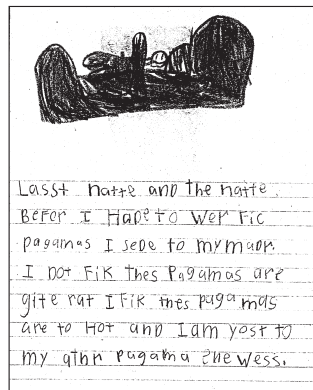 Lasst natte and the natte
Befer I Hade to wer Fic
pagamas I sede to my madr.
I dot Fik thes Pagamas are
gite rat I Fik thes pagamas
are to Hot and I am yost to
my athr pagama the wess.